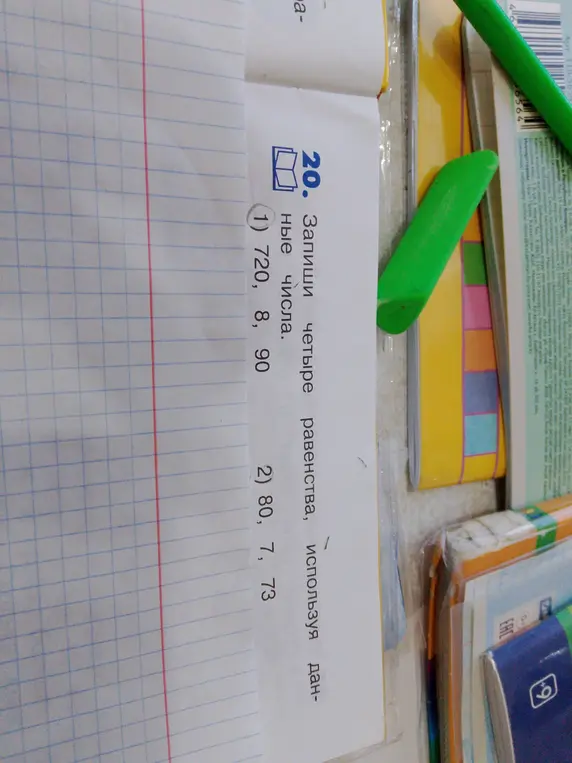 ра-
20. Запиши четыре равенства, используя дан-
ные числа.
1) 720, 8, 90 2) 80, 7, 73